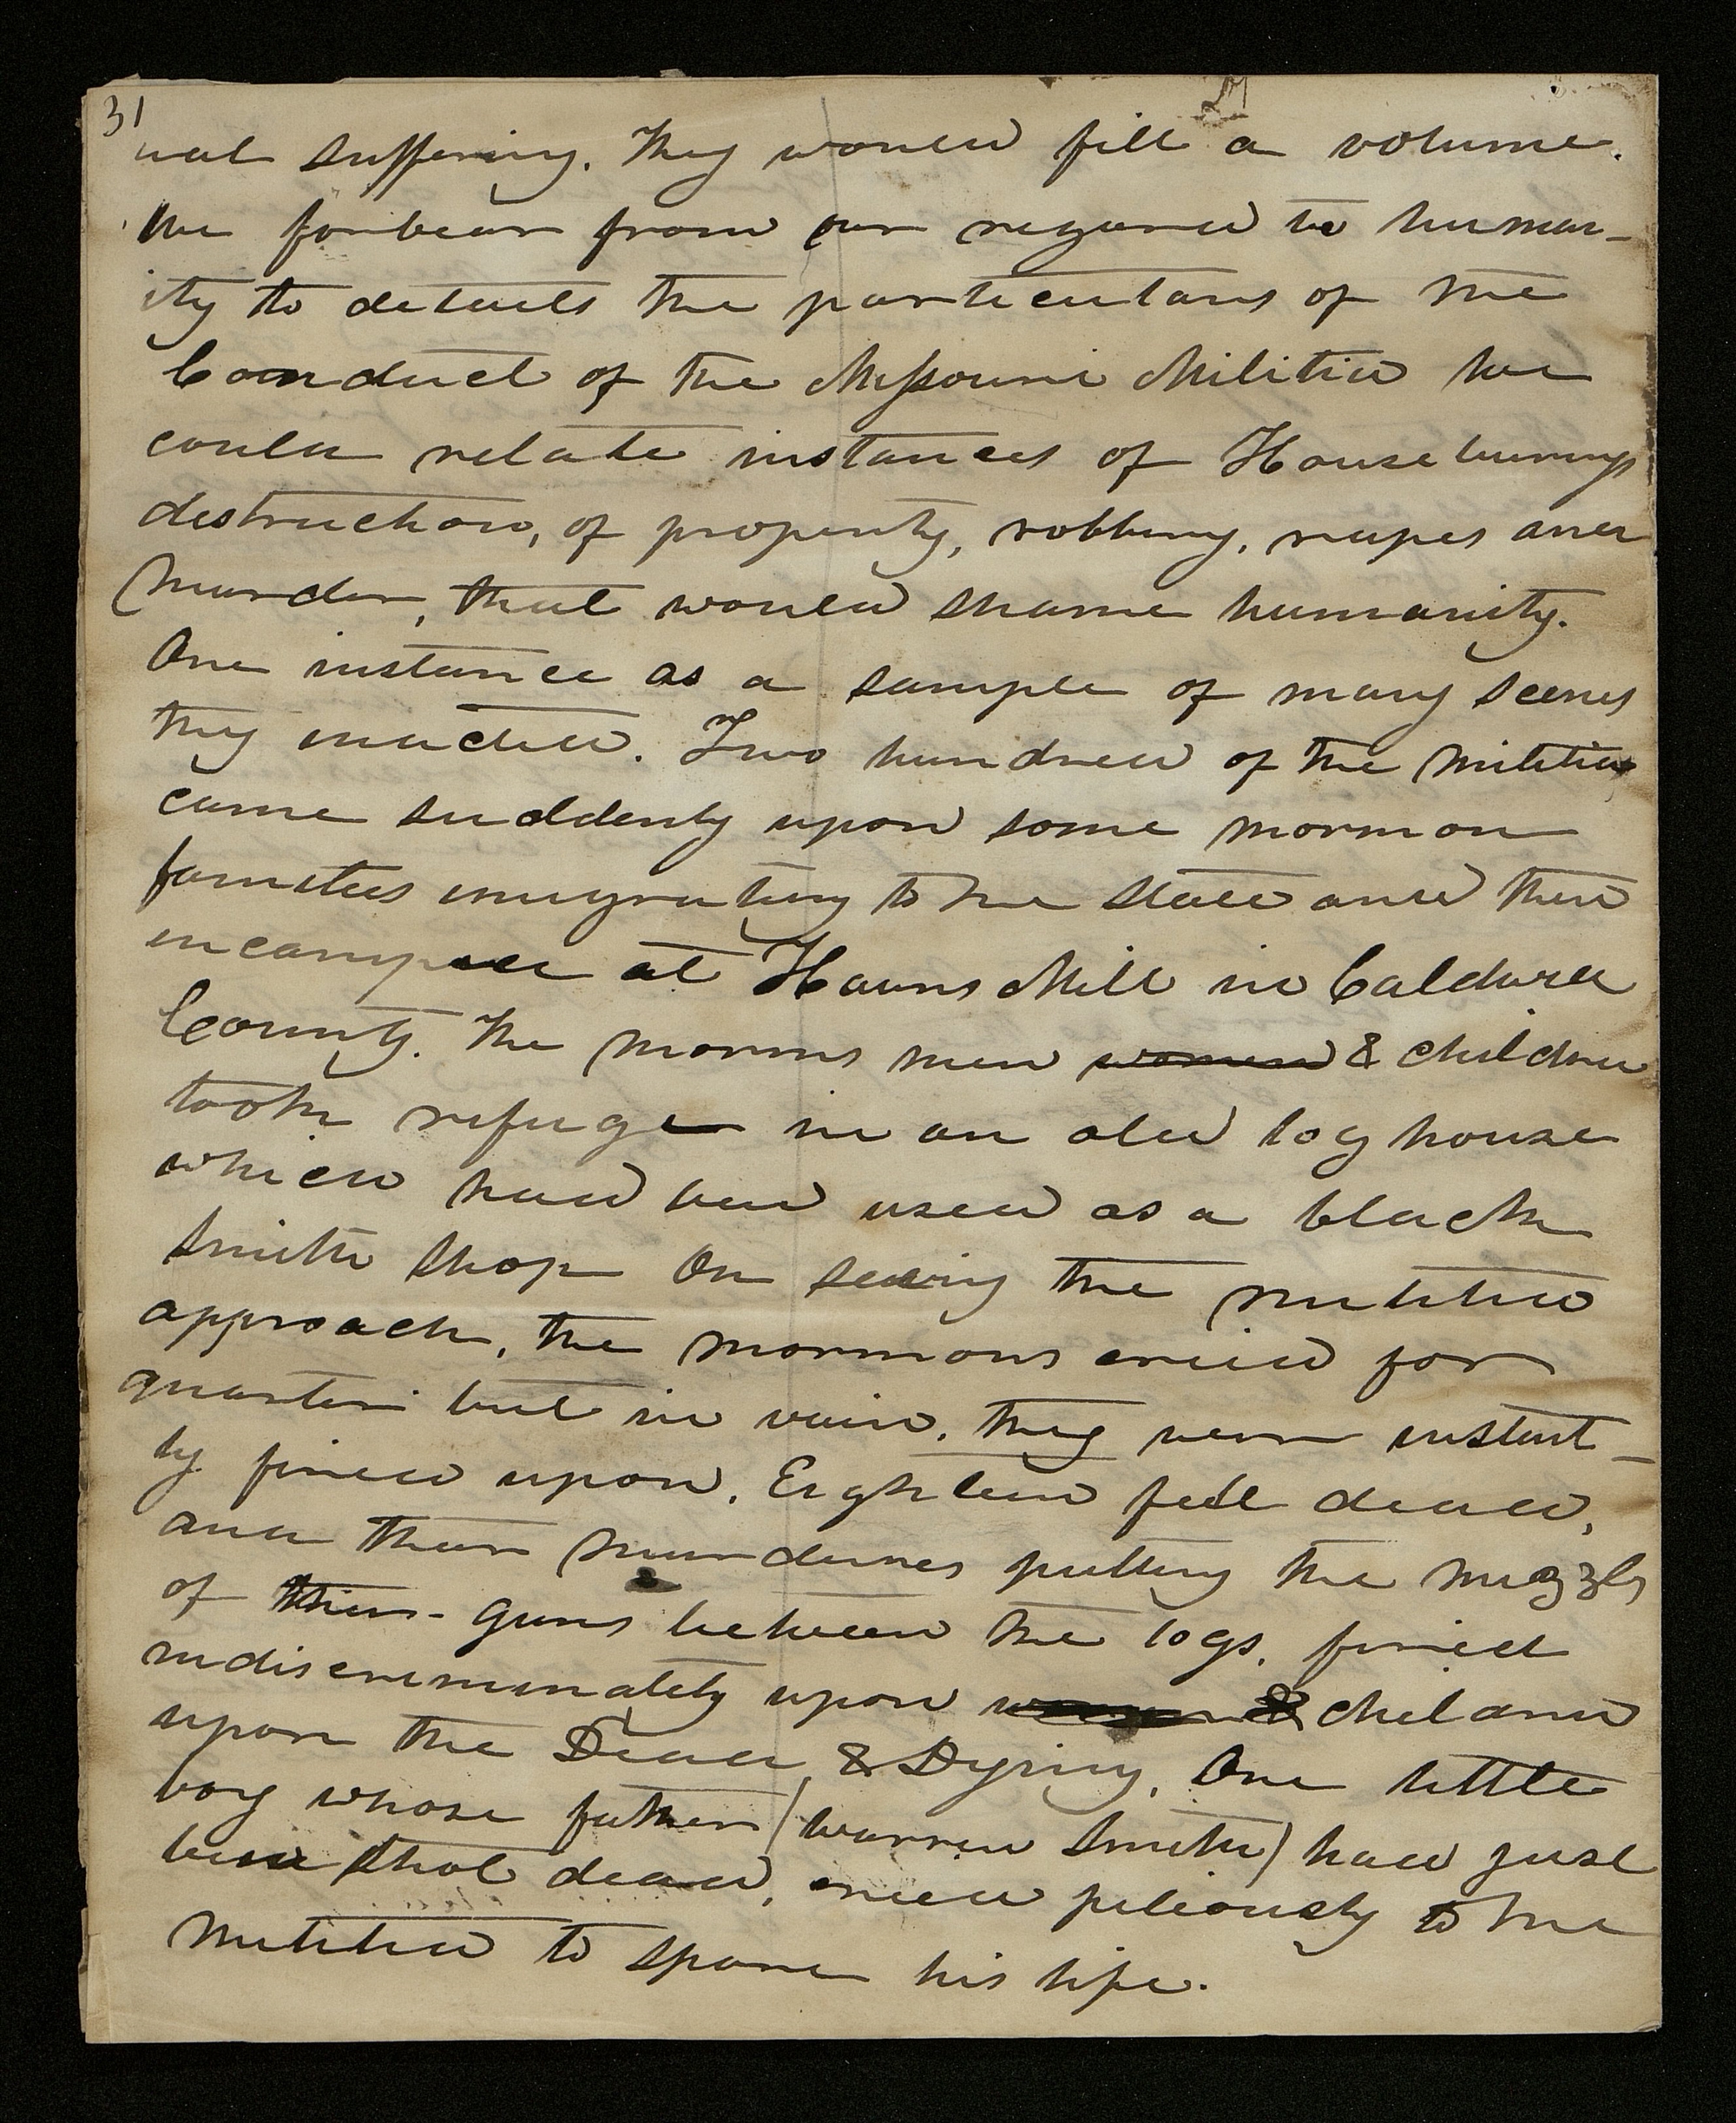 31
ual suffering. They would fill a volume.
We forbear from our regard to human-
ity to details the particulars of the
Conduct of the Missouri Militia we
could relate instances of House burnings
destruction, of property, robbing, rapes and
Murder, that would shame humanity.
One instance as a sample of many scenes
they enacted. Two hundred of the militia
came suddenly upon some mormon
families emigrating to the State and then
encamped at Hauns Mill in Caldwell
County. The mormns men women & children
took refuge in an old log house
which had been used as a black
Smith Shop On seeing the militia
approach, the mormons cried for
quarter but in vain. they were instant-
ly fired upon. Eighteen fell dead,
and their murderers putting the muzzls
of their guns between the logs, fired
indiscriminately upon women & children
upon the Dead & Dying. One little
boy whose father (warren Smith) had just
been shot dead, cried piteously to the
militia to spare his life.